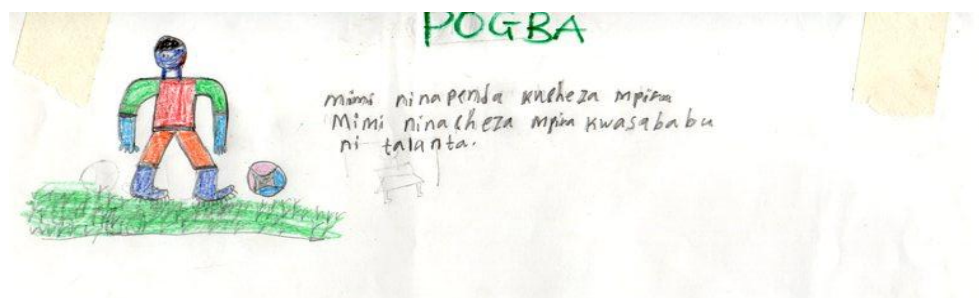 POGBA
Mimi ninapenda kucheza mpira
Mimi ninacheza mpira kwasababu
ni talanta.